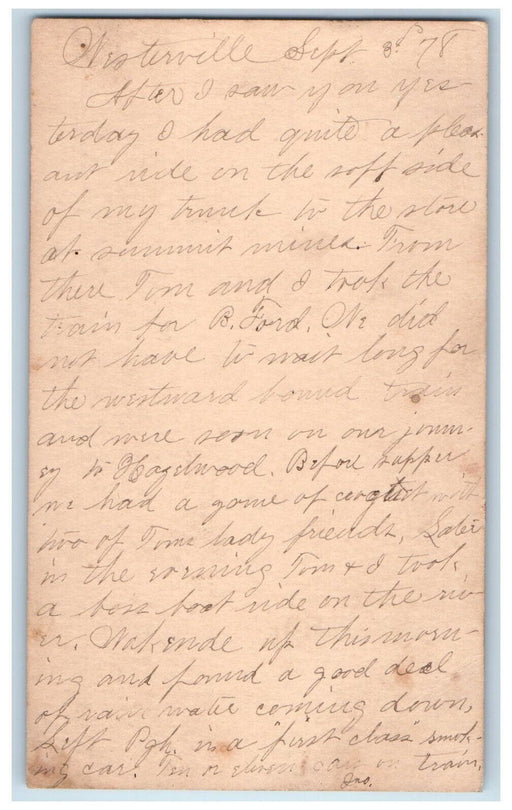 Westerville Sept. 3d 78
After I saw you yes-
terday I had quite a pleas-
ant ride on the soft side
of my trunk to the store
at summit mines. From
there Tom and I took the
train for B. Ford. We did
not have to wait long for
the westward bound train
and were soon on our journ-
ey to Hazelwood. Before supper
we had a game of croquet with
two of Toms lady friends. Later
in the evening Tom & I took
a boat ride on the riv-
er. Wakende up this morn-
ing and found a good deal
of rain water coming down,
Left Pgh. in a "first class" smok-
ing car. Ten or eleven cars on train.
Jno.